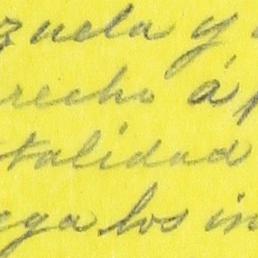 zuela y
recho á
talidad
ega los in